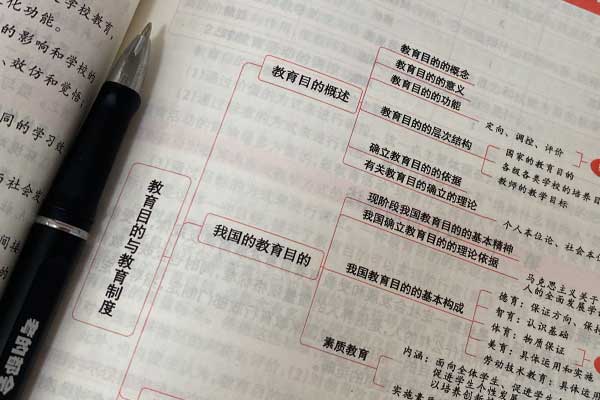 学校教育,
化功能。
的影响和学校的
、效仿和觉悟,
同的学习效
与社会发
教育目的与教育制度
教育目的概述
教育目的的概念
教育目的的意义
教育目的的功能
定向、调控、评价
教育目的的层次结构
国家的教育目的
各级各类学校的培养目
教师的教学目标
确立教育目的的依据
有关教育目的确立的理论
个人本位论、社会本位
我国的教育目的
现阶段我国教育目的的基本精神
我国确立教育目的的理论依据
马克思主义关于
人的全面发展学
我国教育目的的基本构成
德育:保证方向、保持
智育:认识基础
体育:物质保证
美育:具体运用和实施
劳动技术教育:具体运用
素质教育
内涵:面向全体学生、促进学生
促进学生个性发展
以培养创新
实施素